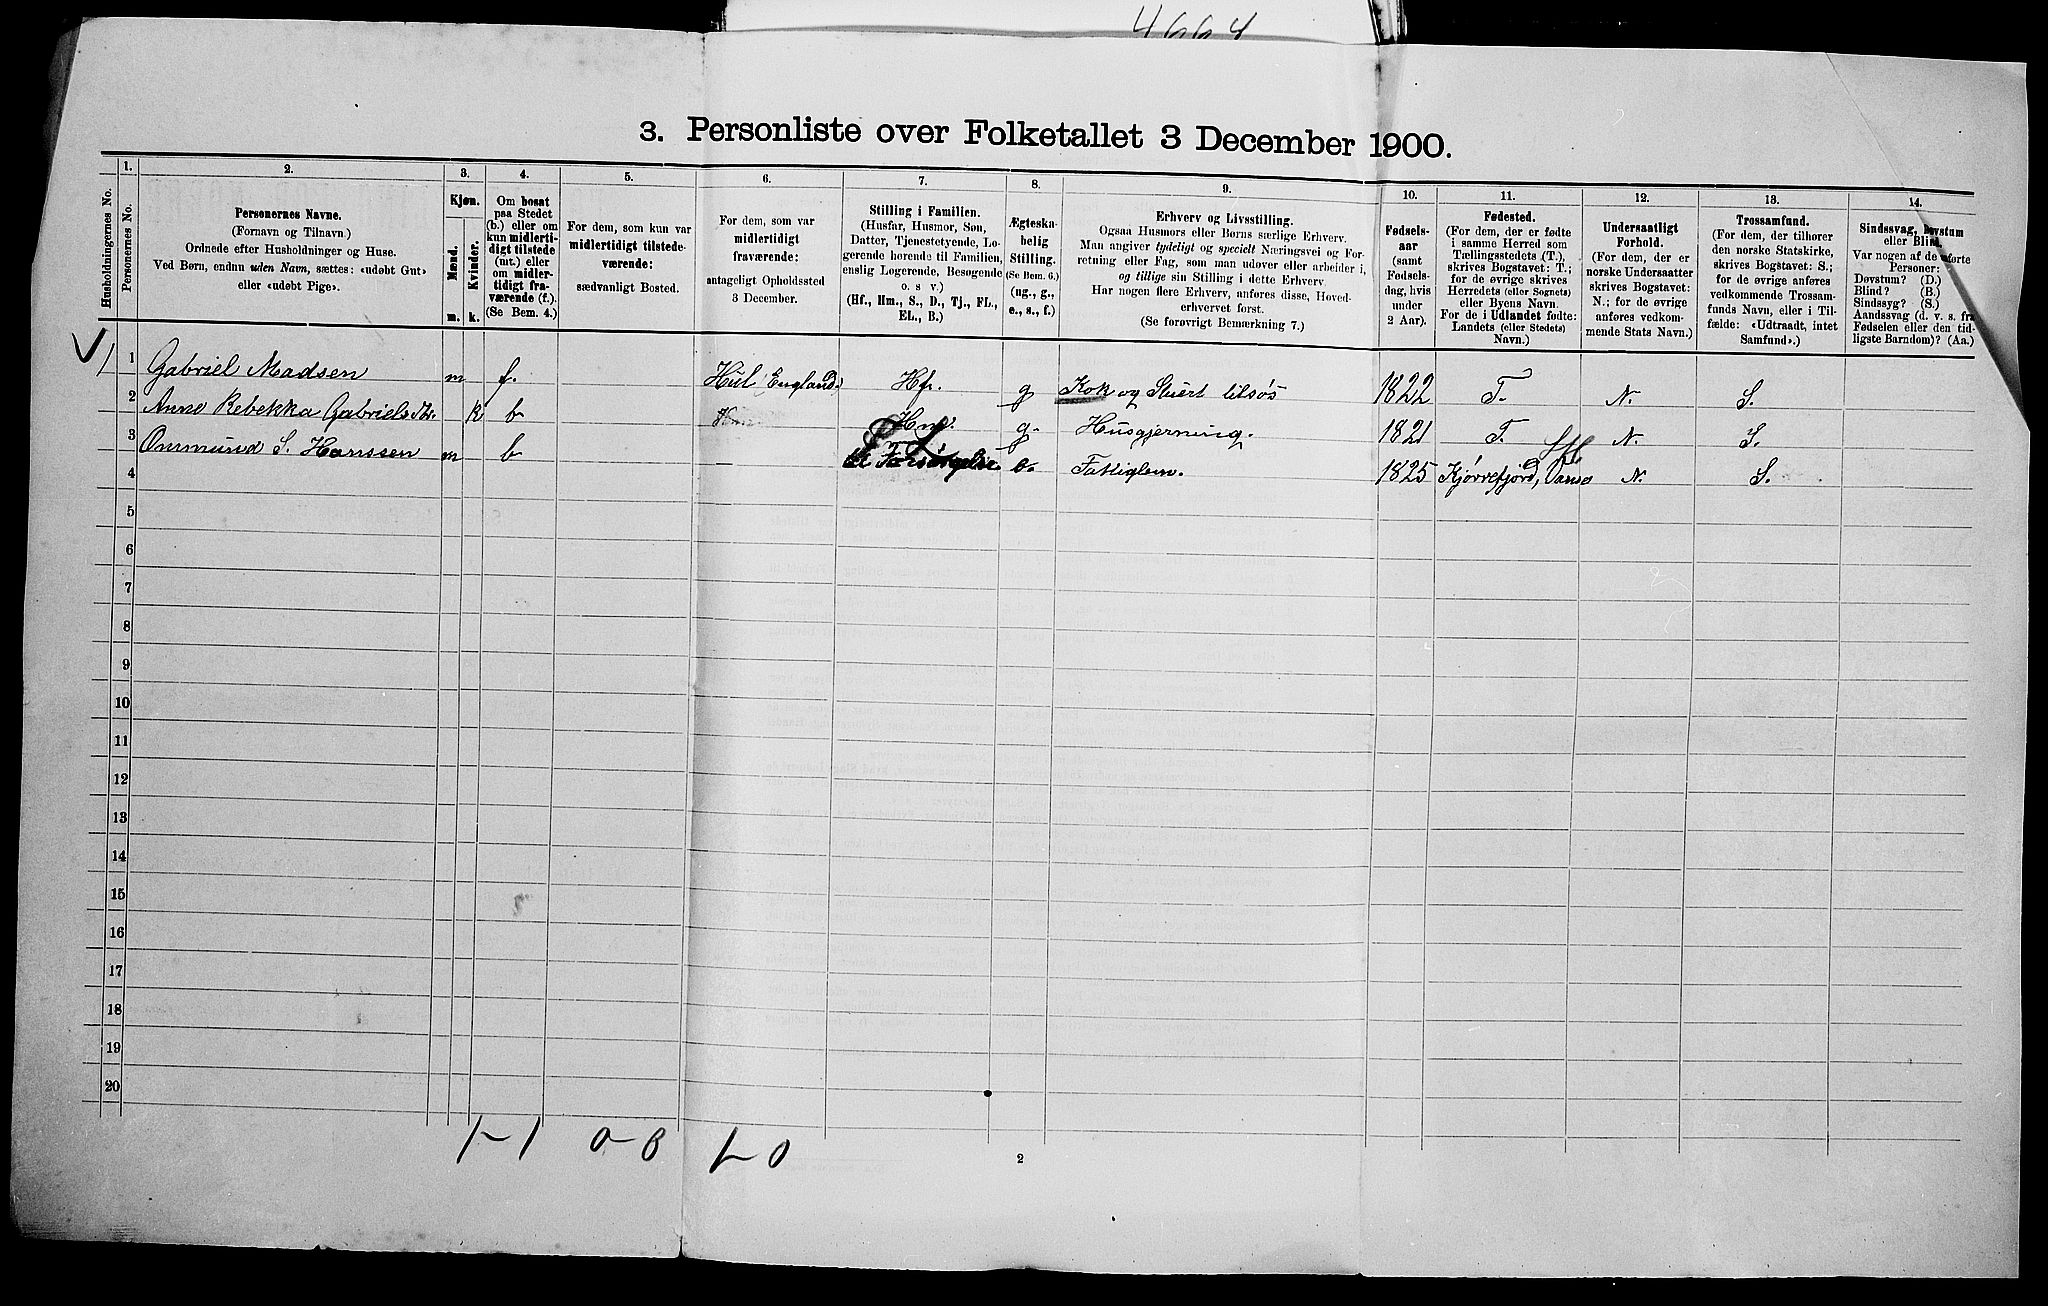 4664
3. Personliste over Folketallet 3 December 1900.
Husholdningernes No.
1.
Personernes No.
2.
Personernes Navne.
(Fornavn og Tilnavn.)
Ordnede efter Husholdninger og Huse.
Ved Børn, endnu uden Navn, sættes: «udøbt Gut»
eller «udøbt Pige».
3.
Kjøn.
Mænd.
Kvinder.
m.
k.
4.
Om bosat
paa Stedet
(b.) eller om
kun midlerti-
digt tilstede
(mt.) eller
om midler-
tidigt fra-
værende (f.).
(Se Bem. 4.)
5.
For dem, som kun var
midlertidigt tilstede-
værende:
sædvanligt Bosted.
6.
For dem, som var
midlertidigt
fraværende:
antageligt Opholdssted
3 December.
7.
Stilling i Familien.
(Husfar, Husmor, Søn,
Datter, Tjenestetyende, Lo-
gerende hørende til Familien,
enslig Logerende, Besøgende
o. s v.)
(Hf., Hm., S., D., Tj., FL.,
EL., B.)
8.
Ægteska-
belig
Stilling.
(Se Bem. 6.)
(ug., g.,
e., s., f.)
9.
Erhverv og Livsstilling.
Ogsaa Husmors eller Børns særlige Erhverv.
Man angiver tydeligt og specielt Næringsvei og For-
retning eller Fag, som man udøver eller arbeider i,
og tillige sin Stilling i dette Erhverv.
Har nogen flere Erhverv, anføres disse, Hoved-
erhvervet først.
(Se forøvrigt Bemærkning 7.)
10.
Fødsels-
aar
(samt
Fødsels-
dag, hvis
under
2 Aar).
11.
Fødested.
(For dem, der er fødte
i samme Herred som
Tællingsstedets (T.),
skrives Bogstavet: T.;
for de øvrige skrives
Herredets (eller Sognets)
eller Byens Navn.
For de i Udlandet fødte:
Landets (eller Stedets)
Navn.)
12.
Undersaatligt
Forhold.
(For dem, der er
norske Undersaatter
skrives Bogstavet:
N.; for de øvrige
anføres vedkom-
mende Stats Navn.)
13.
Trossamfund.
(For dem, der tilhører
den norske Statskirke,
skrives Bogstavet: S.;
for de øvrige anføres
vedkommende Trossam-
funds Navn, eller i Til-
fælde: «Udtraadt, intet
Samfund».)
14.
Sindssvag, Døvstum
eller Blind.
Var nogen af de anførte
Personer:
Døvstum? (D.)
Blind? (B.)
Sindssyg? (S.)
Aandssvag (d. v. s. fra
Fødselen eller den tid-
ligste Barndom)? (Aa.)
1 1 Gabriel Madsen m f. Hul (England.) Hf. g Kok og Stuert tilsøs 1822 T. N. S.
2 Anne Rebekka Gabriels k b Hm. g. Husgjerning. 1821 T. N. S.
3 Ommund S. Hanssen m b Forsørgelse e. Fattiglem. 1825 Kjørrefjord, Vanse N. S.
4
5
6
7
8
9
10
11
12
13
14
15
16
17
18
19
20
1-1 0-0 1-0
2